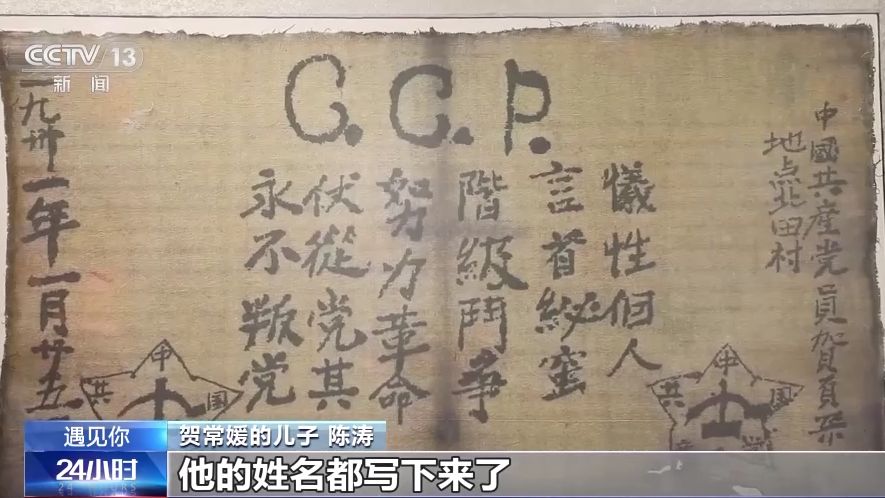 CCTV 13
新闻
中國共産党員賀頁朶
地点北田村
C.C.P.
犧性個人
言首秘蜜
階級鬥争
努力革命
伏從党其
永不叛党
一九卅一年一月廿五
中
共
国
中
共
遇见你
24小时
24 HOURS
贺常媛的儿子 陈涛
他的姓名都写下来了